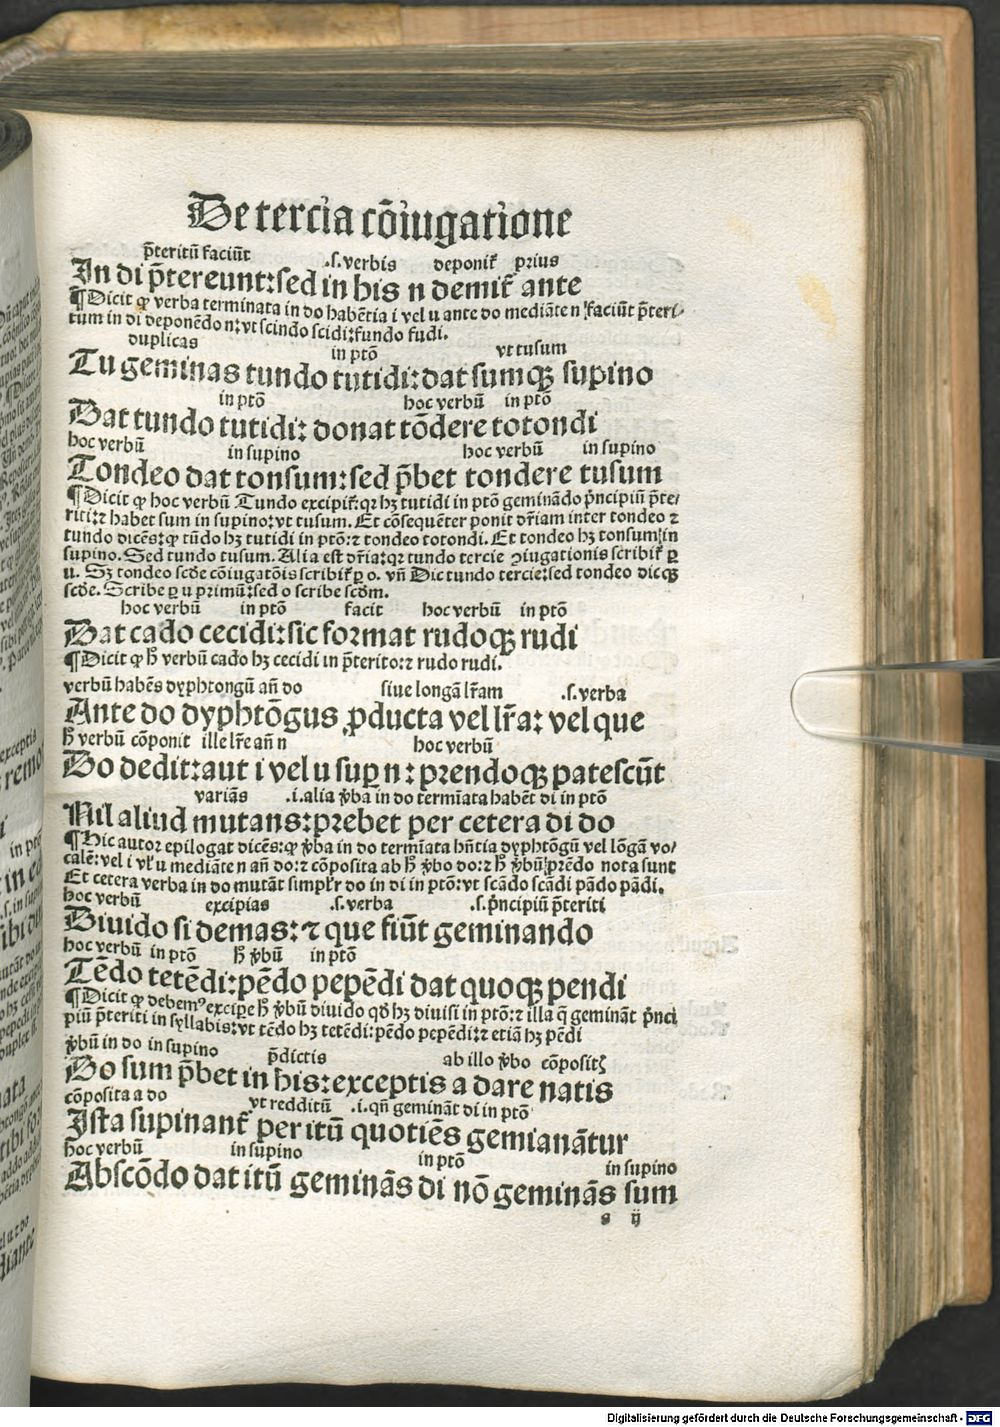 De tercia cõiugatione
p̃teritũ faciũt .s. verbis deponit̃ prius
In di p̃tereunt: sed in his n demit̃ ante
¶ Dicit ꝙ verba terminata in do habẽtia i vel u ante do mediãte n faciũt p̃teri⸗
tum in di deponẽdo n: vt scindo scidi: fundo fudi.
duplicas in ptõ vt tusum
Tu geminas tundo tutidi: dat sumqꝫ supino
in ptõ hoc verbũ in ptõ
Dat tundo tutidi: donat tõdere totondi
hoc verbũ in supino hoc verbũ in supino
Tondeo dat tonsum: sed p̃bet tondere tusum
¶ Dicit ꝙ hoc verbũ Tundo excipit̃: qꝛ hꝫ tutidi in ptõ geminãdo p̃ncipiũ p̃te⸗
riti: ⁊ habet sum in supino: vt tusum. Et cõsequẽter ponit dr̃iam inter tondeo ⁊
tundo dicẽs: ꝙ tũdo hꝫ tutidi in ptõ: ⁊ tondeo totondi. Et tondeo hꝫ tonsum in
supino. Sed tundo tusum. Alia est dr̃ia: qꝛ tundo tercie ꝯiugationis scribit̃ ꝑ
u. Sꝫ tondeo scd̃e cõiugatõis scribit̃ ꝑ o. vñ Dic tundo tercie: sed tondeo dicqꝫ
scd̃e. Scribe ꝑ u primũ: sed o scribe scd̃m.
hoc verbũ in ptõ facit hoc verbũ in ptõ
Dat cado cecidi: sic format rudoqꝫ rudi
¶ Dicit ꝙ h̃ verbũ cado hꝫ cecidi in p̃terito: ⁊ rudo rudi.
verbũ habẽs dyphtongũ añ do siue longã lr̃am .s. verba
Ante do dyphtõgus ꝓducta vel lr̃a: vel que
h̃ verbũ cõponit ille lr̃e añ n hoc verbũ
Do dedit: aut i vel u suꝑ n: prendoqꝫ patescũt
variãs .i. alia v̾ba in do termĩata habẽt di in ptõ
Nil aliud mutans: prebet per cetera di do
¶ Hic autor epilogat dicẽs: ꝙ v̾ba in do termĩata hñtia dyphtõgũ vel lõgã vo⸗
calẽ: vel i vl̃ u mediãte n añ do: ⁊ cõposita ab h̃ v̾bo do: ⁊ h̃ v̾bũ prẽdo nota sunt
Et cetera verba in do mutãt simpl̃r do in di in ptõ: vt scãdo scãdi pãdo pãdi.
hoc verbũ excipias .s. verba .s. p̃ncipiũ p̃teriti
Diuido si demas: ⁊ que fiũt geminando
hoc verbũ in ptõ h̃ v̾bũ in ptõ
Tẽdo tetẽdi: pẽdo pepẽdi dat quoqꝫ pendi
¶ Dicit ꝙ debemꝰ excipe h̃ v̾bũ diuido qd̃ hꝫ diuisi in ptõ: ⁊ illa q̃ geminãt p̃nci
piũ p̃teriti in syllabis: vt tẽdo hꝫ tetẽdi: pẽdo pepẽdi: ⁊ etiã hꝫ pẽdi
v̾bũ in do in supino p̃dictis ab illo v̾bo cõposit̃
Do sum p̃bet in his: exceptis a dare natis
cõposita a do vt redditũ .i. qñ geminãt di in ptõ
Ista supinant̃ per itũ quotiẽs gemianãtur
hoc verbũ in supino in ptõ in supino
Abscõdo dat itũ geminãs di nõ geminãs sum
s ij
Digitalisierung gefördert durch die Deutsche Forschungsgemeinschaft - DFG